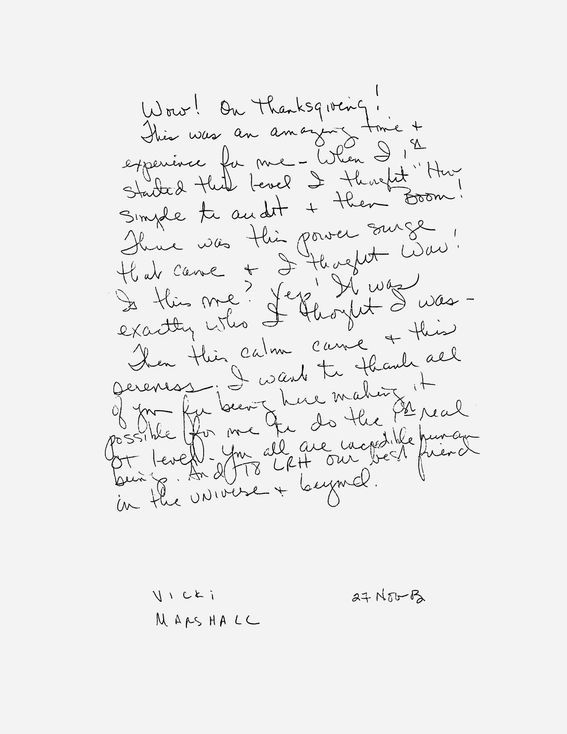 Wow! On Thanksgiving!
This was an amazing time +
experience for me - When I 1st
started this level I thought "How
simple to audit + then Boom!
There was this power surge
that came + I thought Wow!
Is this me? Yep! It was
exactly who I thought I was -
Then this calm came + this
sereness. I want to thank all
of you for being here making it
possible for me to do the 1st real
OT level. You all are incredible human
beings. And to LRH our best friend
in the universe + beyond.
VICKI
MARSHALL
27 Nov